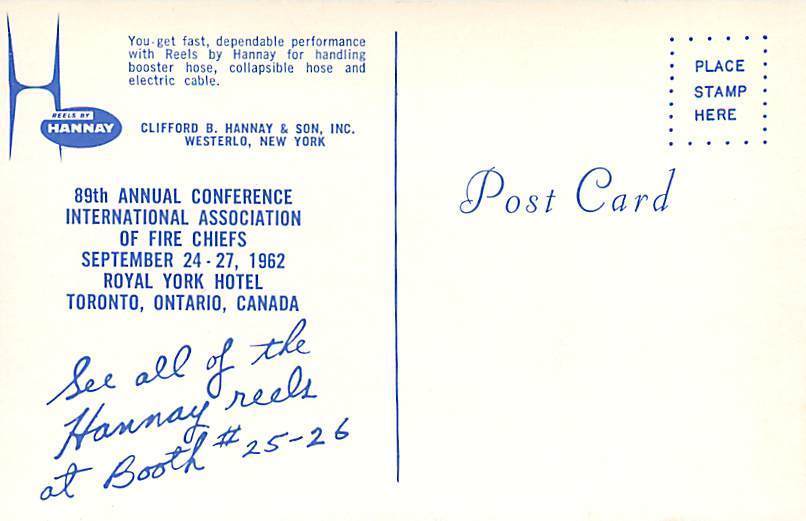 You get fast, dependable performance
with Reels by Hannay for handling
booster hose, collapsible hose and
electric cable.
REELS BY
HANNAY
CLIFFORD B. HANNAY & SON, INC.
WESTERLO, NEW YORK
89th ANNUAL CONFERENCE
INTERNATIONAL ASSOCIATION
OF FIRE CHIEFS
SEPTEMBER 24 - 27, 1962
ROYAL YORK HOTEL
TORONTO, ONTARIO, CANADA
See all of the
Hannay reels
at Booth # 25-26
PLACE
STAMP
HERE
Post Card